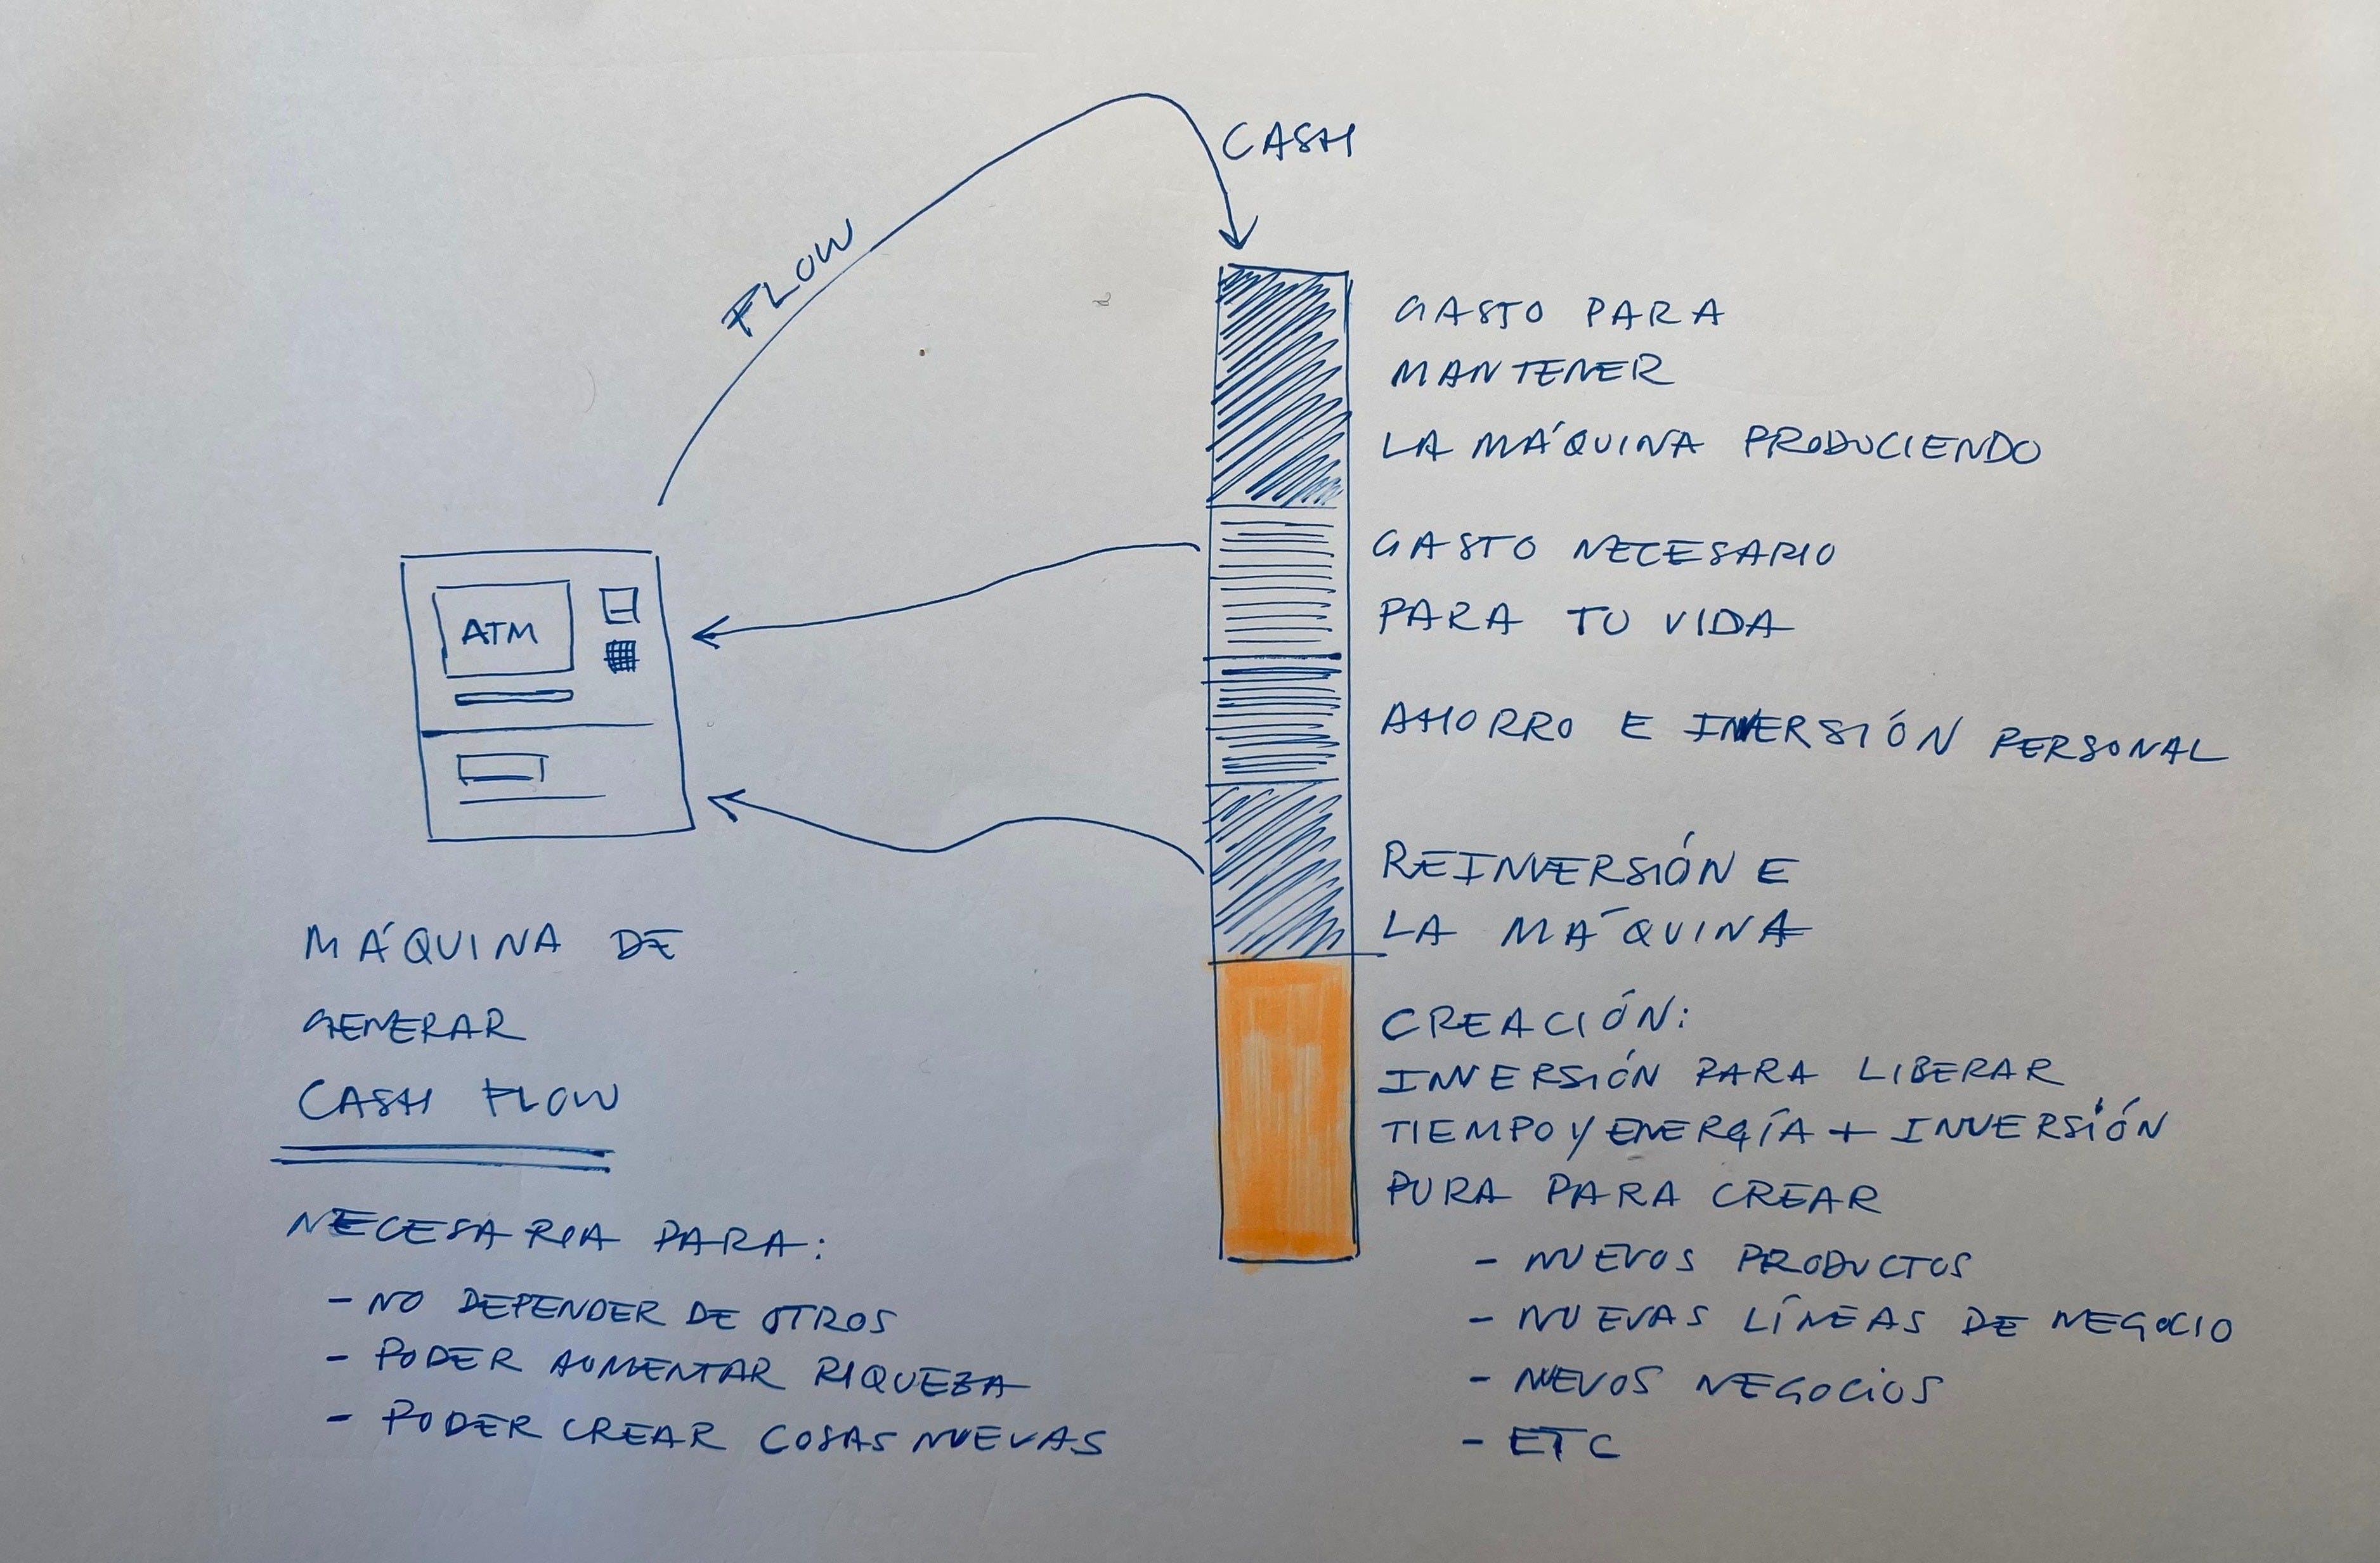 CASH
FLOW
GASTO PARA
MANTENER
LA MÁQUINA PRODUCIENDO
GASTO NECESARIO
PARA TU VIDA
ATM
AHORRO E INVERSIÓN PERSONAL
REINVERSIÓN E
LA MÁQUINA
MÁQUINA DE
GENERAR
CASH FLOW
NECESARIA PARA:
- NO DEPENDER DE OTROS
- PODER AUMENTAR RIQUEZA
- PODER CREAR COSAS NUEVAS
CREACIÓN:
INVERSIÓN PARA LIBERAR
TIEMPO Y ENERGÍA + INVERSIÓN
PURA PARA CREAR
- NUEVOS PRODUCTOS
- NUEVAS LÍNEAS DE NEGOCIO
- NUEVOS NEGOCIOS
- ETC